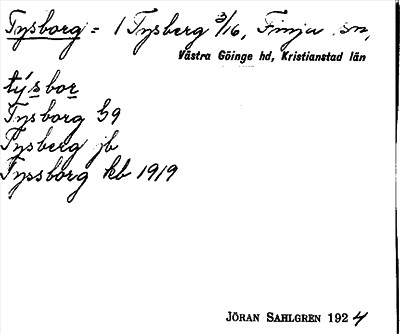 Tysborg = 1 Tysberg 3/16, Finja sn,
Västra Göinge hd, Kristianstad län
týs bor
Tysborg 59
Tysberg jb
Tyssborg kb 1919
JÖRAN SAHLGREN 1924